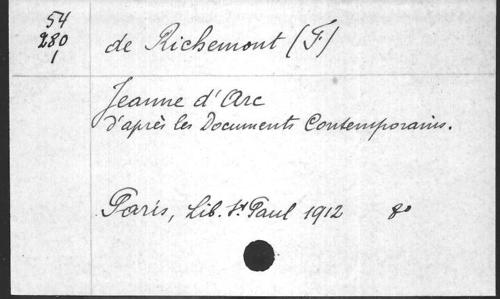 54
280
1
de Richemont (F)
Jeanne d'Arc
d'après les Documents Contemporains.
Paris, Lib. St Paul 1912 8°